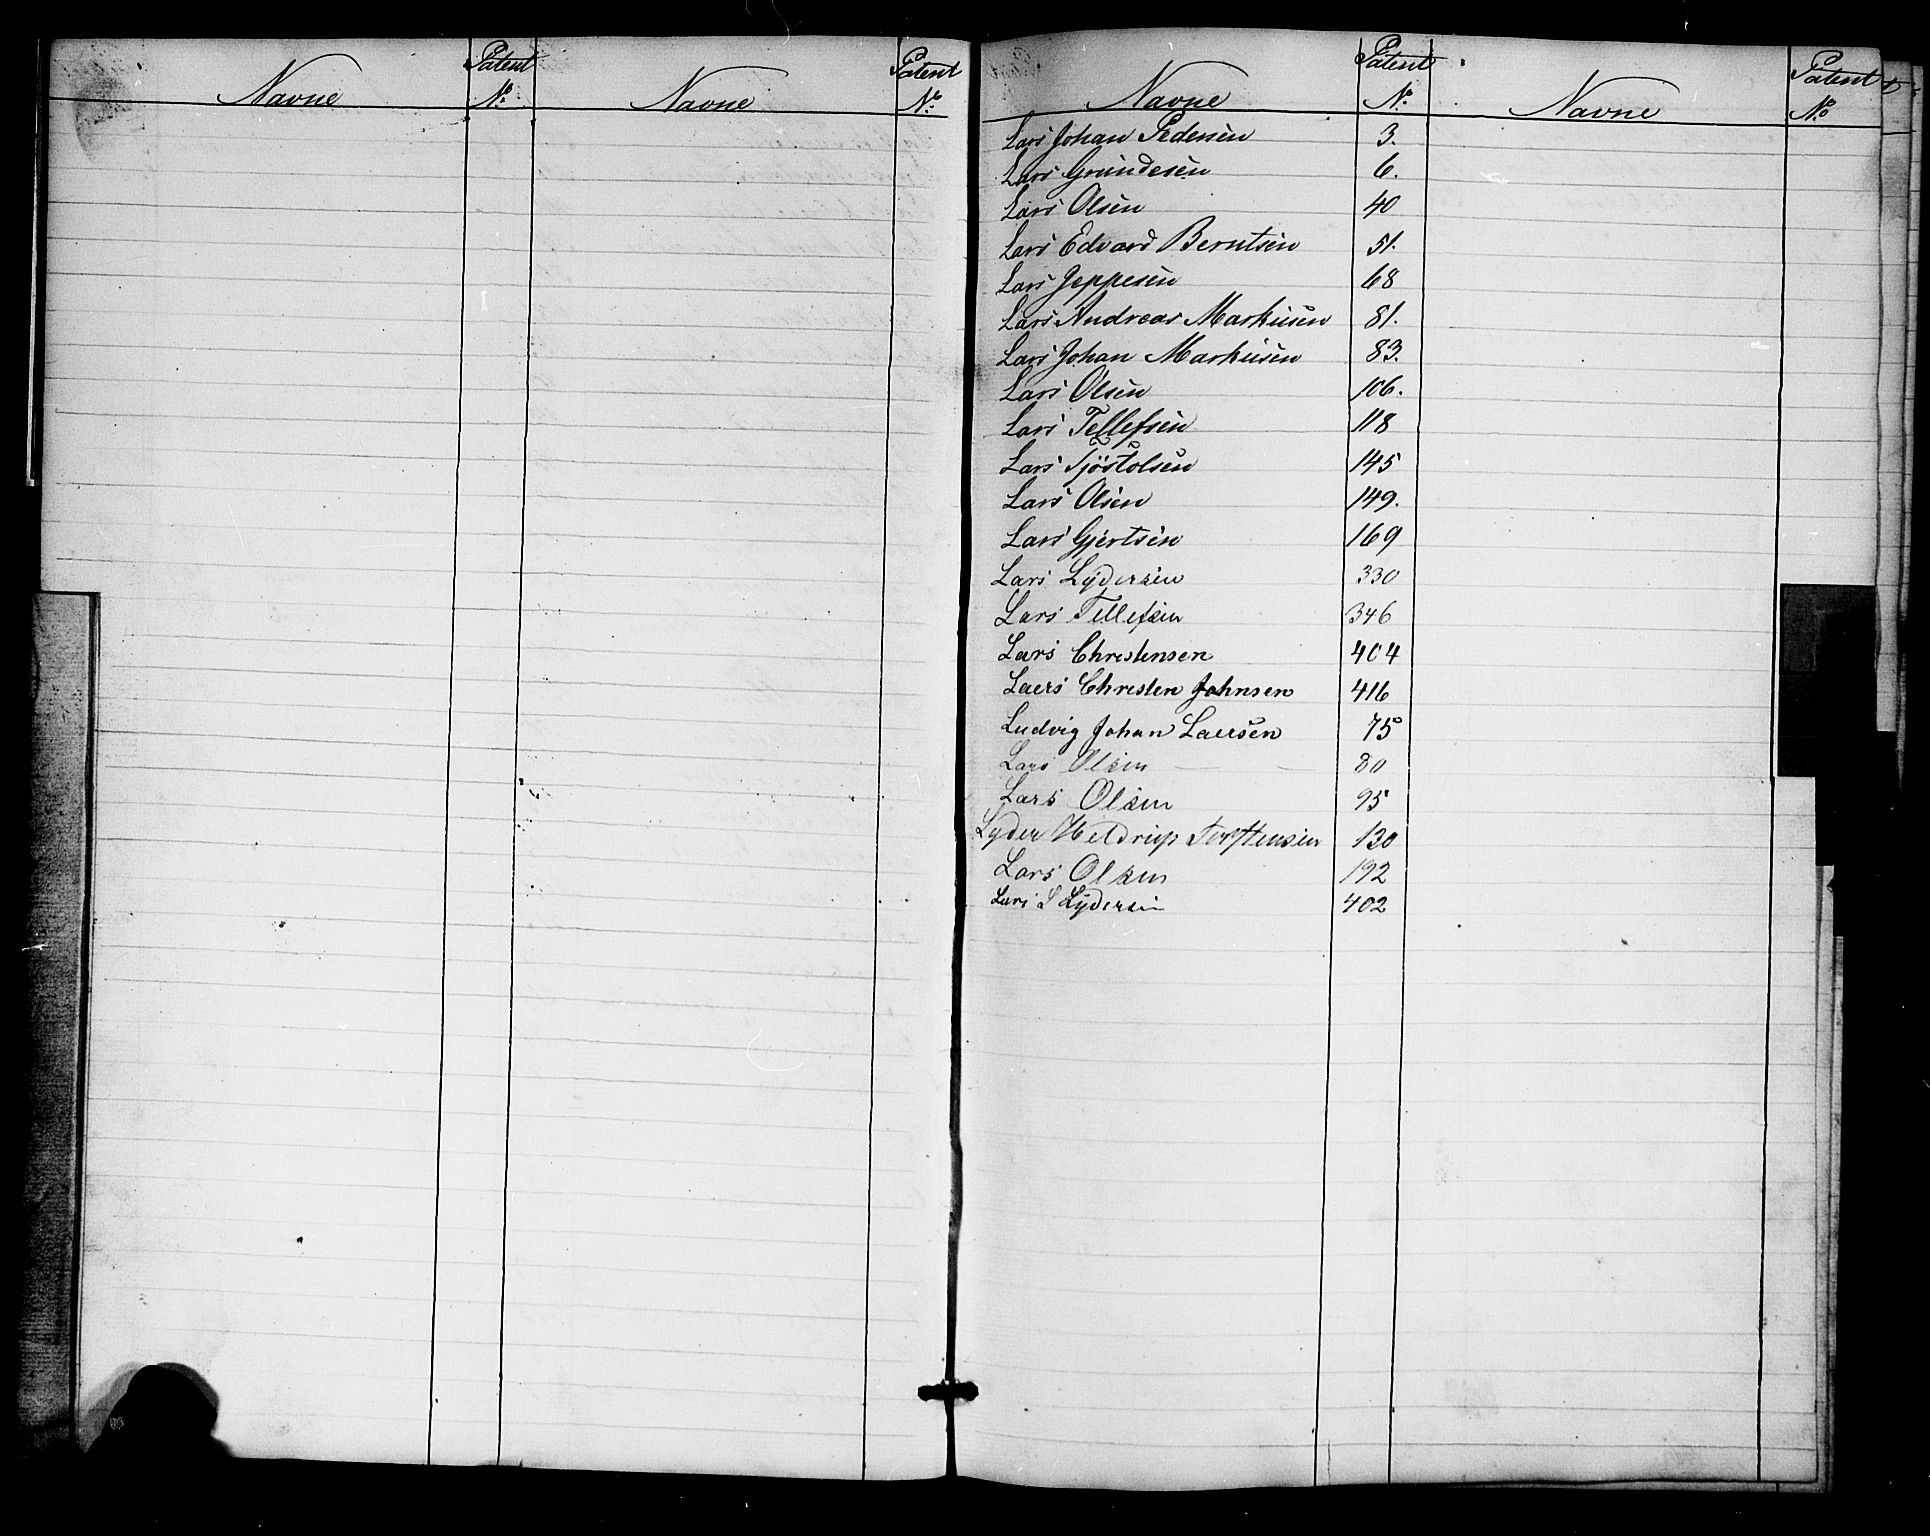 Navne Patent No. Navne Patent No.
Navne Patent No. Navne Patent No
Lars Johan Pedersen 3.
Lars Grundesen 6.
Lars Olsen 40
Lars Edvard Berntsen 51.
Lars Jeppesen 68
Lars Andreas Markusen 81.
Lars Johan Markusen 83.
Lars Olsen 106.
Lars Tellefsen 118
Lars Tjöstolsen 145
Lars Olsen 149.
Lars Gjertsen 169
Lars Lydersen 330
Lars Tellefsen 346
Lars Christensen 404
Laers Christen Johnsen 416
Ludvig Johan Laersen 75
Lars Olsen — — 80
Lars Olsen 95
Lyder Heldrup Torstensen 130
Lars Olsen 192
Lars L Lydersen 402